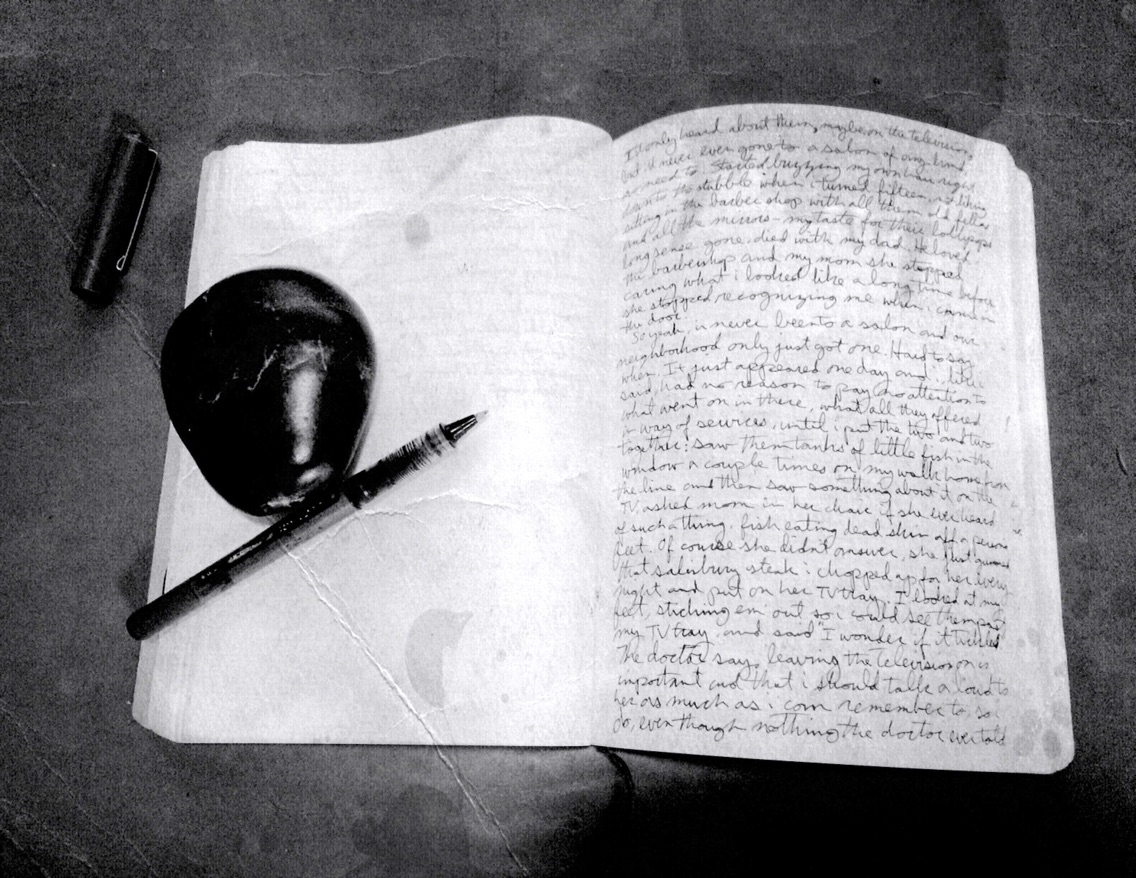 I'd only heard about them, maybe on the television,
but i'd never even gone to a salon of any kind,
no need to. Started buzzing my own hair right
down to the stubble when i turned fifteen, not liking
sitting in the barber shop with all them old fellas
and all the mirrors – my taste for their lollipops
long sense gone, died with my dad. He loved
the barbershop and my mom she stopped
caring what i looked like a long time before
she stopped recognizing me when i came in
the door.
So yeah, i never been to a salon and our
neighborhood only just got one. Hard to say
when. It just appeared one day and i, like i
said, had no reason to pay no attention to
what went on in there, what all they offered
in way of services, until i put the two and two
together: saw them tanks of little fish in the
window a couple times on my walk home from
the line and then saw something about it on the
TV, asked mom in her chair if she ever heard
of such a thing, fish eating dead skin off a persons
feet. Of course she didn't answer, she just
that salisbury steak i chopped up for her every
night and put on her TV tray. I looked at my
feet, sticking em' out so i could see them past
my TV tray, and said "I wonder if it tickles
The doctor says leaving the television on is
important and that i should talk aloud to
her as much as i can remember to, so i
do, even though nothing the doctor ever told